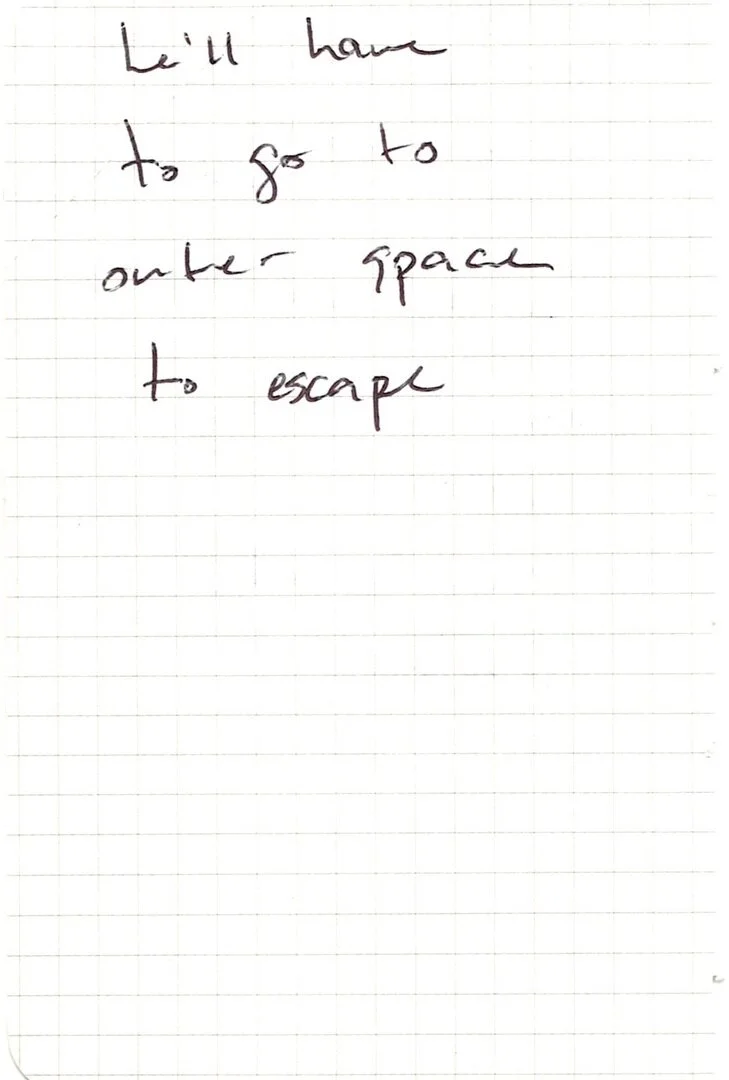 he'll have
to go to
outer space
to escape